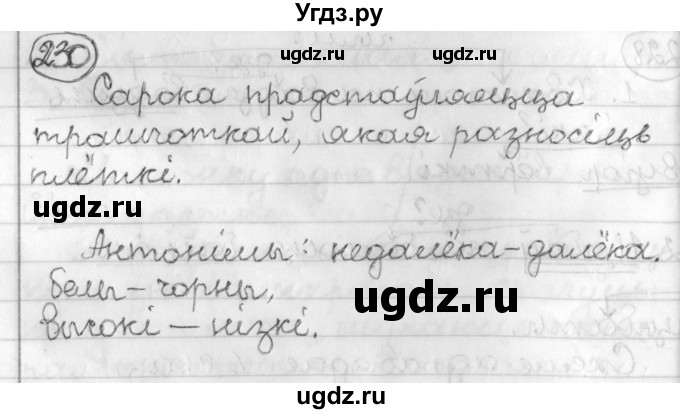 Угдз.ру
230
ugdz.ru ugdz.ru
Сарока прадстаўляецца
трашчоткай, якая разносіць
плёткі.
ugdz.ru
ugdz.ru
Антонімы: недалёка - далёка.
белы - чорны,
высокі - нізкі.
ugdz.ru
ugdz.ru ugdz.ru
ugdz.ru